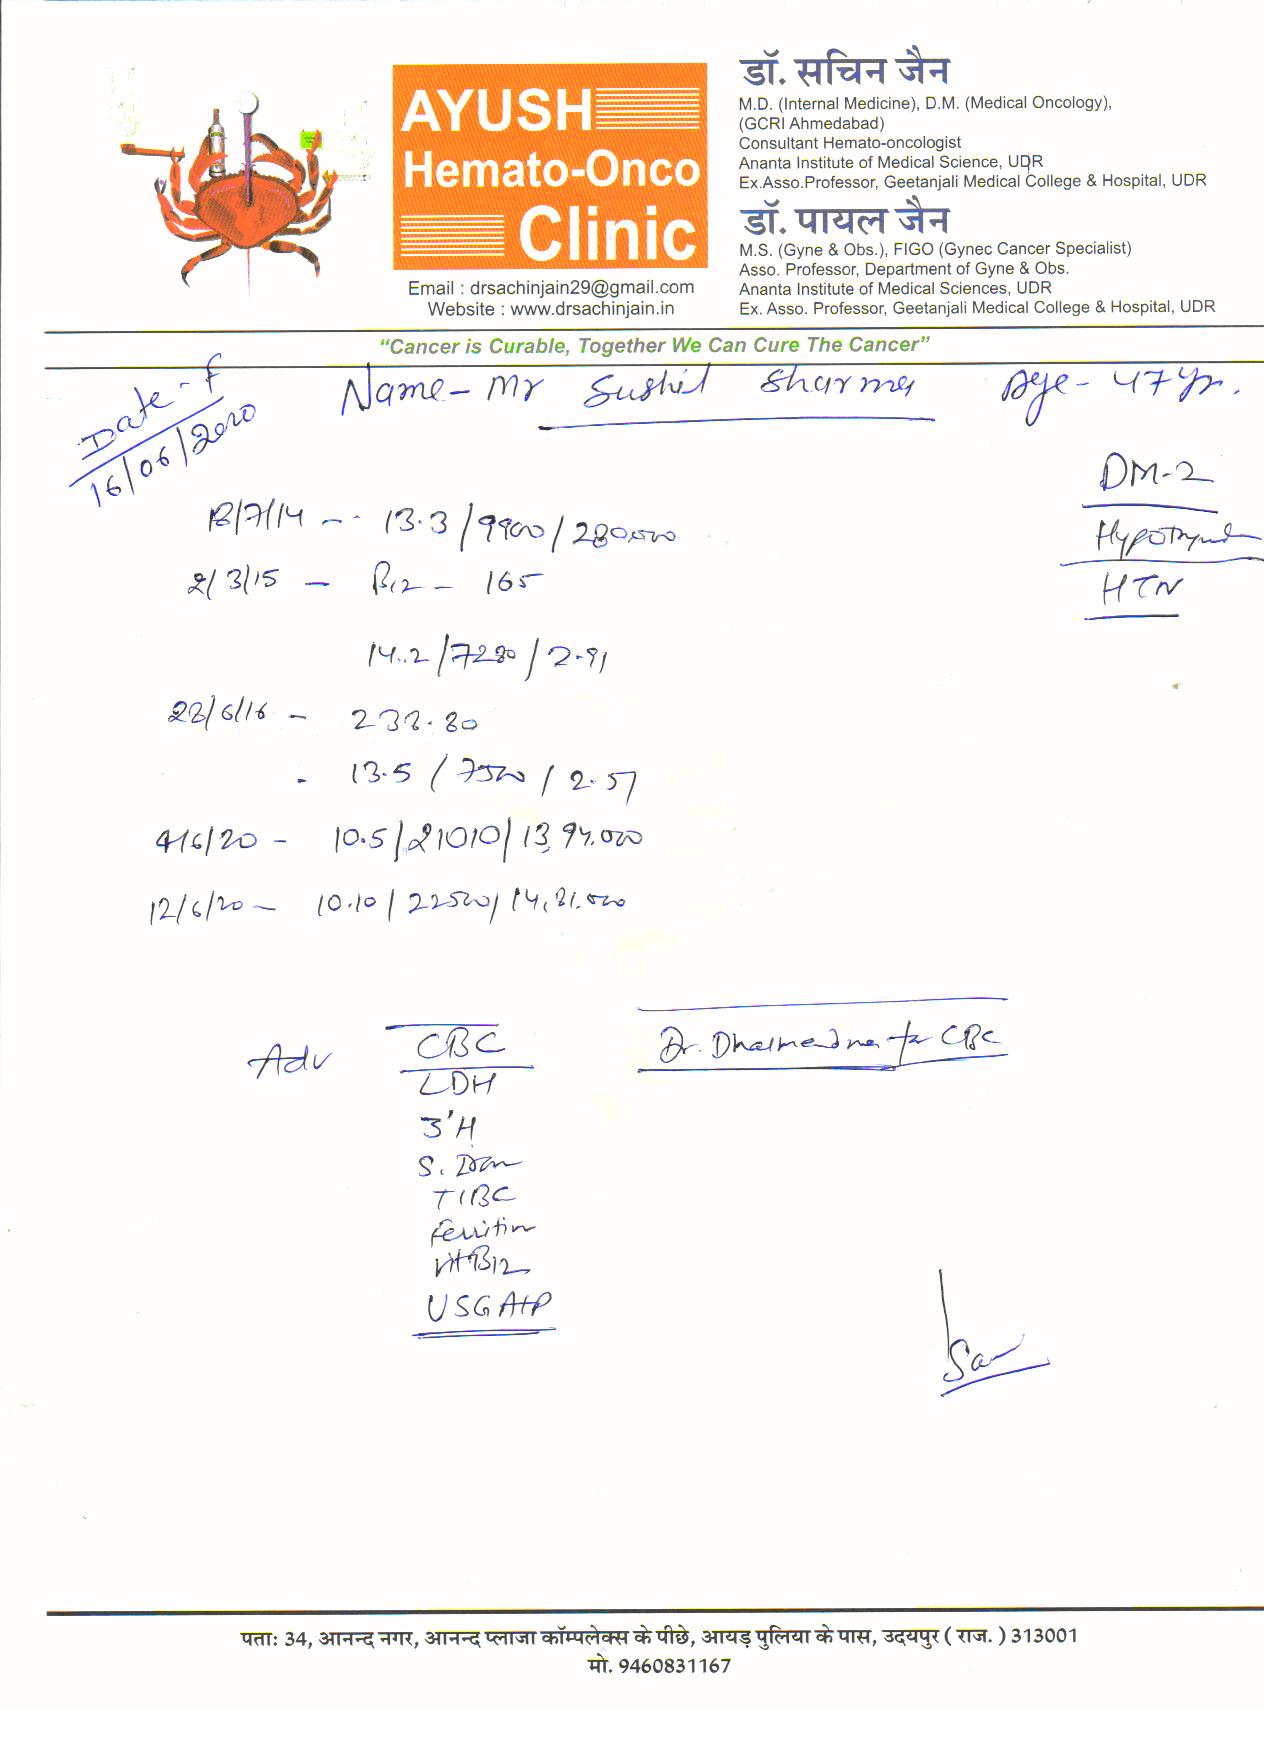 AYUSH
Hemato-Onco
Clinic
Email : drsachinjain29@gmail.com
Website : www.drsachinjain.in
डॉ. सचिन जैन
M.D. (Internal Medicine), D.M. (Medical Oncology),
(GCRI Ahmedabad)
Consultant Hemato-oncologist
Ananta Institute of Medical Science, UDR
Ex.Asso.Professor, Geetanjali Medical College & Hospital, UDR
डॉ. पायल जैन
M.S. (Gyne & Obs.), FIGO (Gynec Cancer Specialist)
Asso. Professor, Department of Gyne & Obs.
Ananta Institute of Medical Sciences, UDR
Ex. Asso. Professor, Geetanjali Medical College & Hospital, UDR
“Cancer is Curable, Together We Can Cure The Cancer”
Date -
16/06/2020
Name - Mr Sushil Sharma Age - 47 Yr.
DM-2
HTN
/7/14 -- 13.3 / 9900 / 280,000
2/3/15 - B12 - 165
14.2 / 7280 / 2.91
22/6/16 - 232.80
- 13.5 / 7500 / 2.57
4/6/20 - 10.5 / 21010 / 13,94,000
12/6/20 - 10.10 / 22500 / 14,21,000
Adv CBC
LDH
S.
TIBC
Ferritin
Vit B12
USG A+P
Dr. Dharmendra for CBC
पताः 34, आनन्द नगर, आनन्द प्लाजा कॉम्पलेक्स के पीछे, आयड़ पुलिया के पास, उदयपुर ( राज. ) 313001
मो. 9460831167